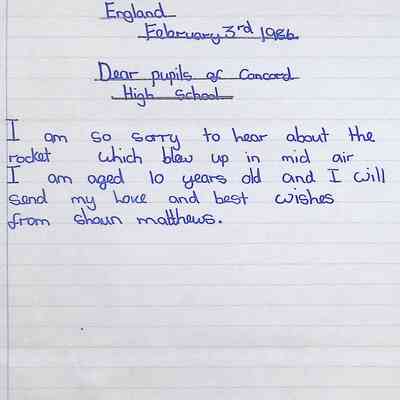 England
February 3rd 1986
Dear pupils of Concord
High School
I am so sorry to hear about the
rocket which blew up in mid air
I am aged 10 years old and I will
send my love and best wishes
from shaun matthews.